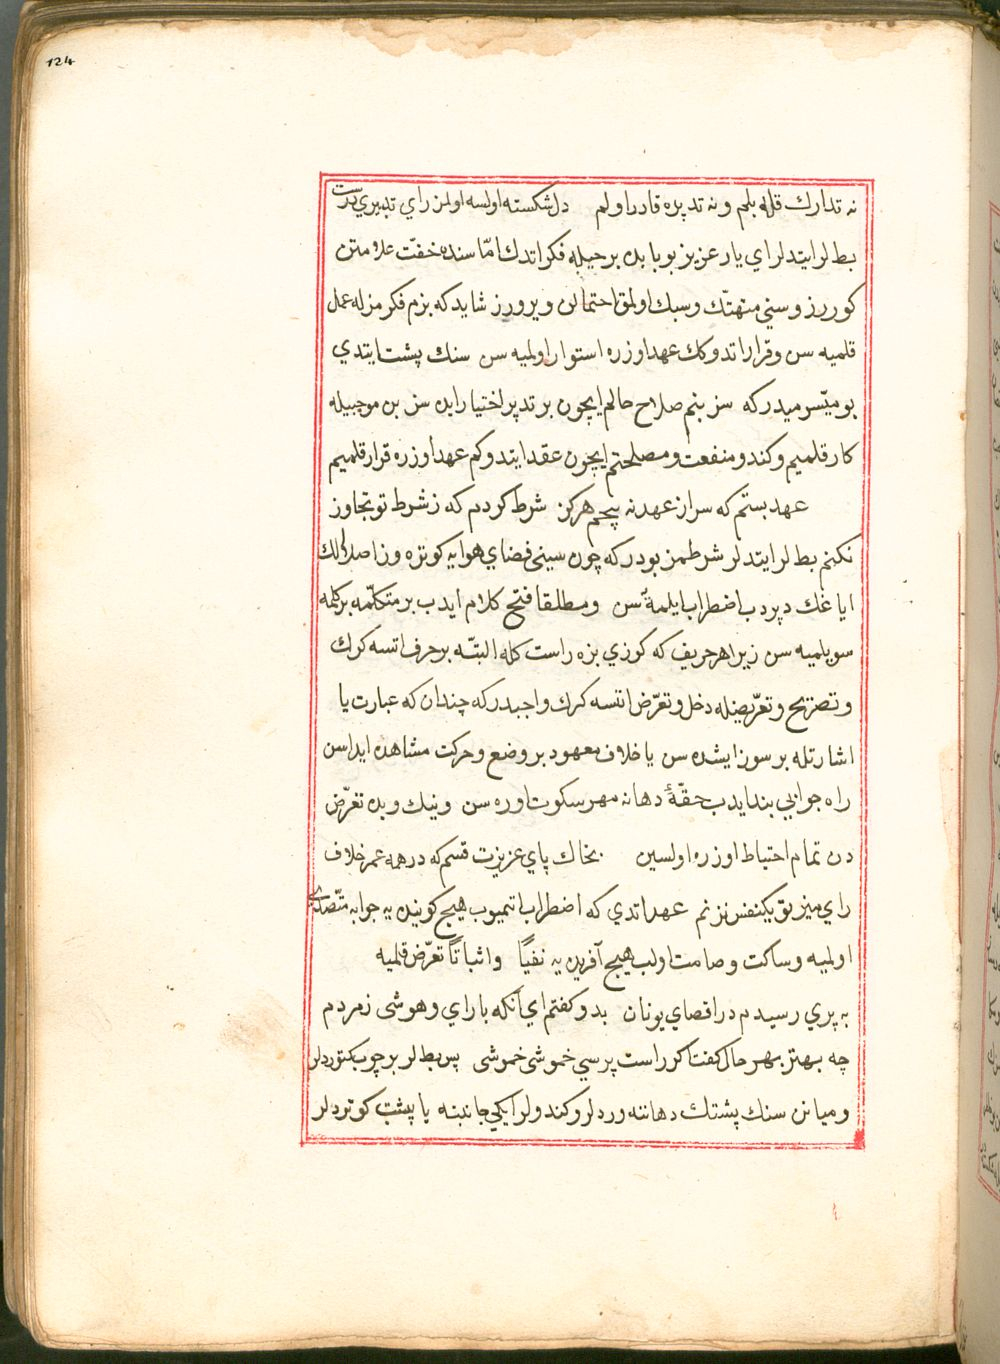 124
نه تدارك قله بلم و نه تدبیره قادر اولم دل شكسته اولسه اولمز راي تدبيري درست
بط لر ايتدلر اي يار عزيز بو بابده بر حيله فكر اتدك امّا سنده خفّت علامتن
كوررز و سني متهتّك و سبك اولمق احتمالن ويرورز شايد كه بزم فكرمزله عمل
قلميه سن و قرار اتدوكك عهد اوزره استوار اولميه سن سنك پشت ايتدي
بو ميّسر ميدر كه سز بنم صلاح حالم ايچون بر تدبير اختيار ايده سز بن موجبيله
كار قلميم و كندو منفعت و مصلحتم ايچون عقد ايتدوكم عهد اوزره قرار قلميم
عهد بستم كه سر از عهد نه پيچم هركز شرط كردم كه ز شرط تو تجاوز
نكنم بط لر ايتدلر شرطمز بودر كه چون سيني فضاي هوايه كوتره وز اصلا لك
اياغك دپردب اضطراب ايلمۀ سن و مطلقا فتح كلام ايدب بر متكلّمه بر كلمه
سويلميه سن زيرا هر حريف كه كوزي بزه راست كله البتّه بر حرف اتسه كرك
و تصريح و تعريضله دخل و تعرّض اتسه كرك واجبدر كه چندان كه عبارت يا
اشارتله بر سوز ايشده سن يا خلاف معهود بر وضع و حركت مشاهده ايداسن
راه جوابي بند ايدب حقّۀ دهانه مهر سكوت اوره سن و نيك و بده تعرّض
دن تمام احتياط اوزره اولسين بخاك پاي عزيزت قسم كه در همه عمر خلاف
راي منير تو يكنفس نزنم عهد اتدي كه اضطراب اتميوب هيچ كوينده يه جوابه متّصدّي
اولميه و ساكت و صامت اولب هيچ آفريده يه نفيًا و اثباتًا تعرّض قلميه
به پري رسيدم در اقصاي يونان بدو كفتم اي آنكه با راي و هوشى ز مردم
چه بهتر بهر حال كفت اكر راست پرسي خموشى خموشى پس بط لر بر چوب كتوردلر
و ميانن سنك پشتك دهاننه وردلر و كندولر ايكي جانبنه يا پيشب كوتردلر